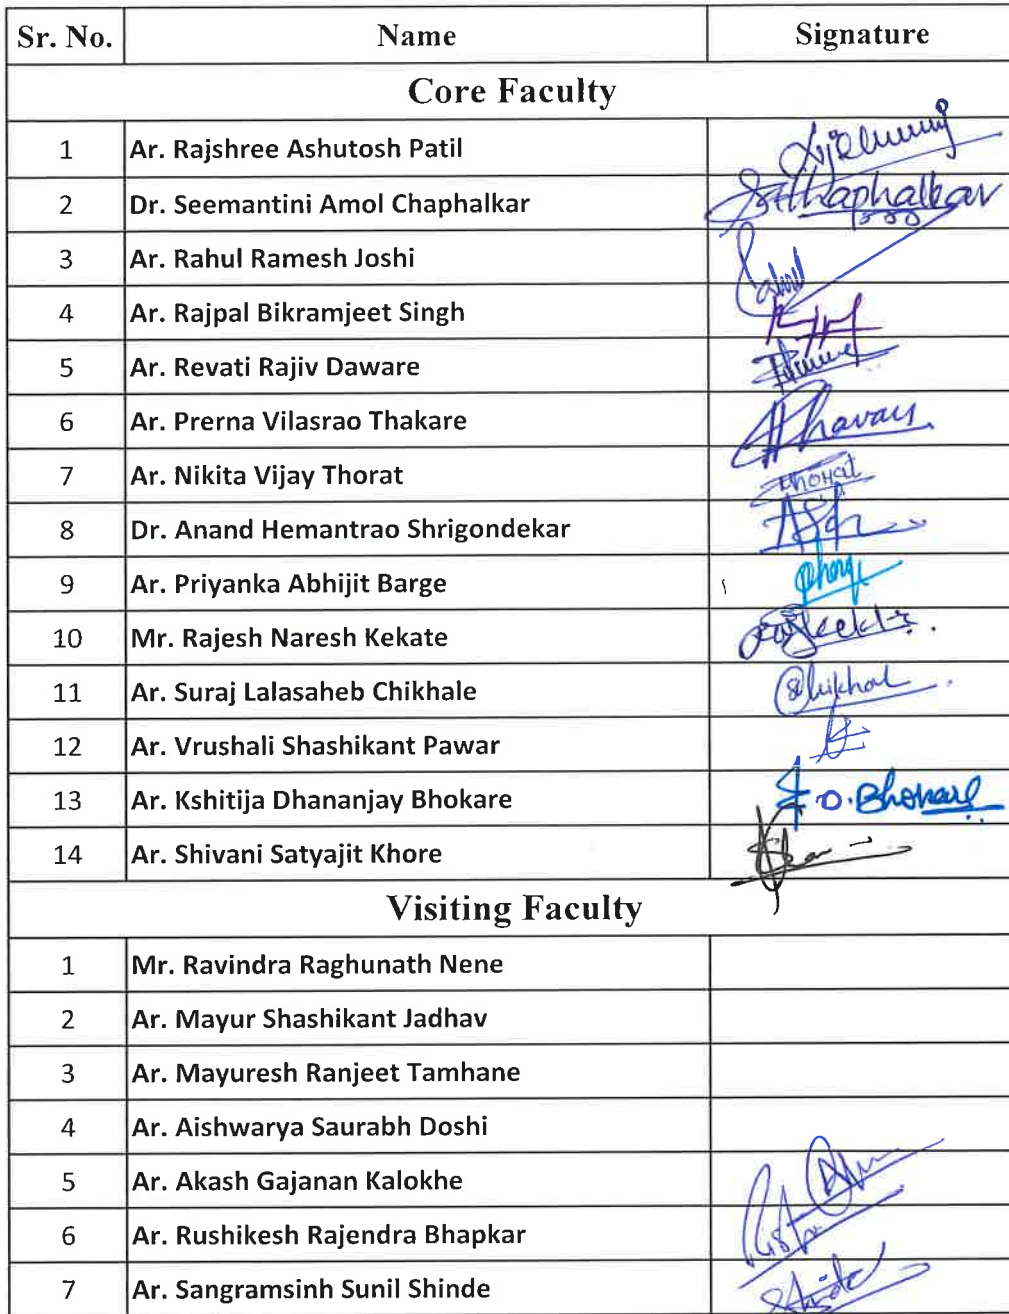 Sr. No. Name Signature
Core Faculty
1 Ar. Rajshree Ashutosh Patil
2 Dr. Seemantini Amol Chaphalkar
3 Ar. Rahul Ramesh Joshi
4 Ar. Rajpal Bikramjeet Singh
5 Ar. Revati Rajiv Daware
6 Ar. Prerna Vilasrao Thakare
7 Ar. Nikita Vijay Thorat Thorat
8 Dr. Anand Hemantrao Shrigondekar
9 Ar. Priyanka Abhijit Barge
10 Mr. Rajesh Naresh Kekate
11 Ar. Suraj Lalasaheb Chikhale
12 Ar. Vrushali Shashikant Pawar
13 Ar. Kshitija Dhananjay Bhokare
14 Ar. Shivani Satyajit Khore
Visiting Faculty
1 Mr. Ravindra Raghunath Nene
2 Ar. Mayur Shashikant Jadhav
3 Ar. Mayuresh Ranjeet Tamhane
4 Ar. Aishwarya Saurabh Doshi
5 Ar. Akash Gajanan Kalokhe
6 Ar. Rushikesh Rajendra Bhapkar
7 Ar. Sangramsinh Sunil Shinde